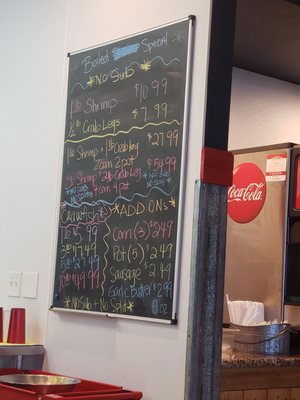 Boiled Special
*No Sub*
1 lb Shrimp $10.99
1/2 lb Crab Legs $7.99
1 lb Shrimp + 1 lb Crab leg $27.99
2 corn 2 pot
Shrimp + 2 lb Crab Leg $54.99
*No Sub 4 corn 4 pot No Split
Crawfish
*ADD ONs*
Corn (3) $2.49
Pot (5) $2.49
Sausage $2.49
Garlic Butter $2.99
*No Sub + No Split*
8 oz
Coca-Cola